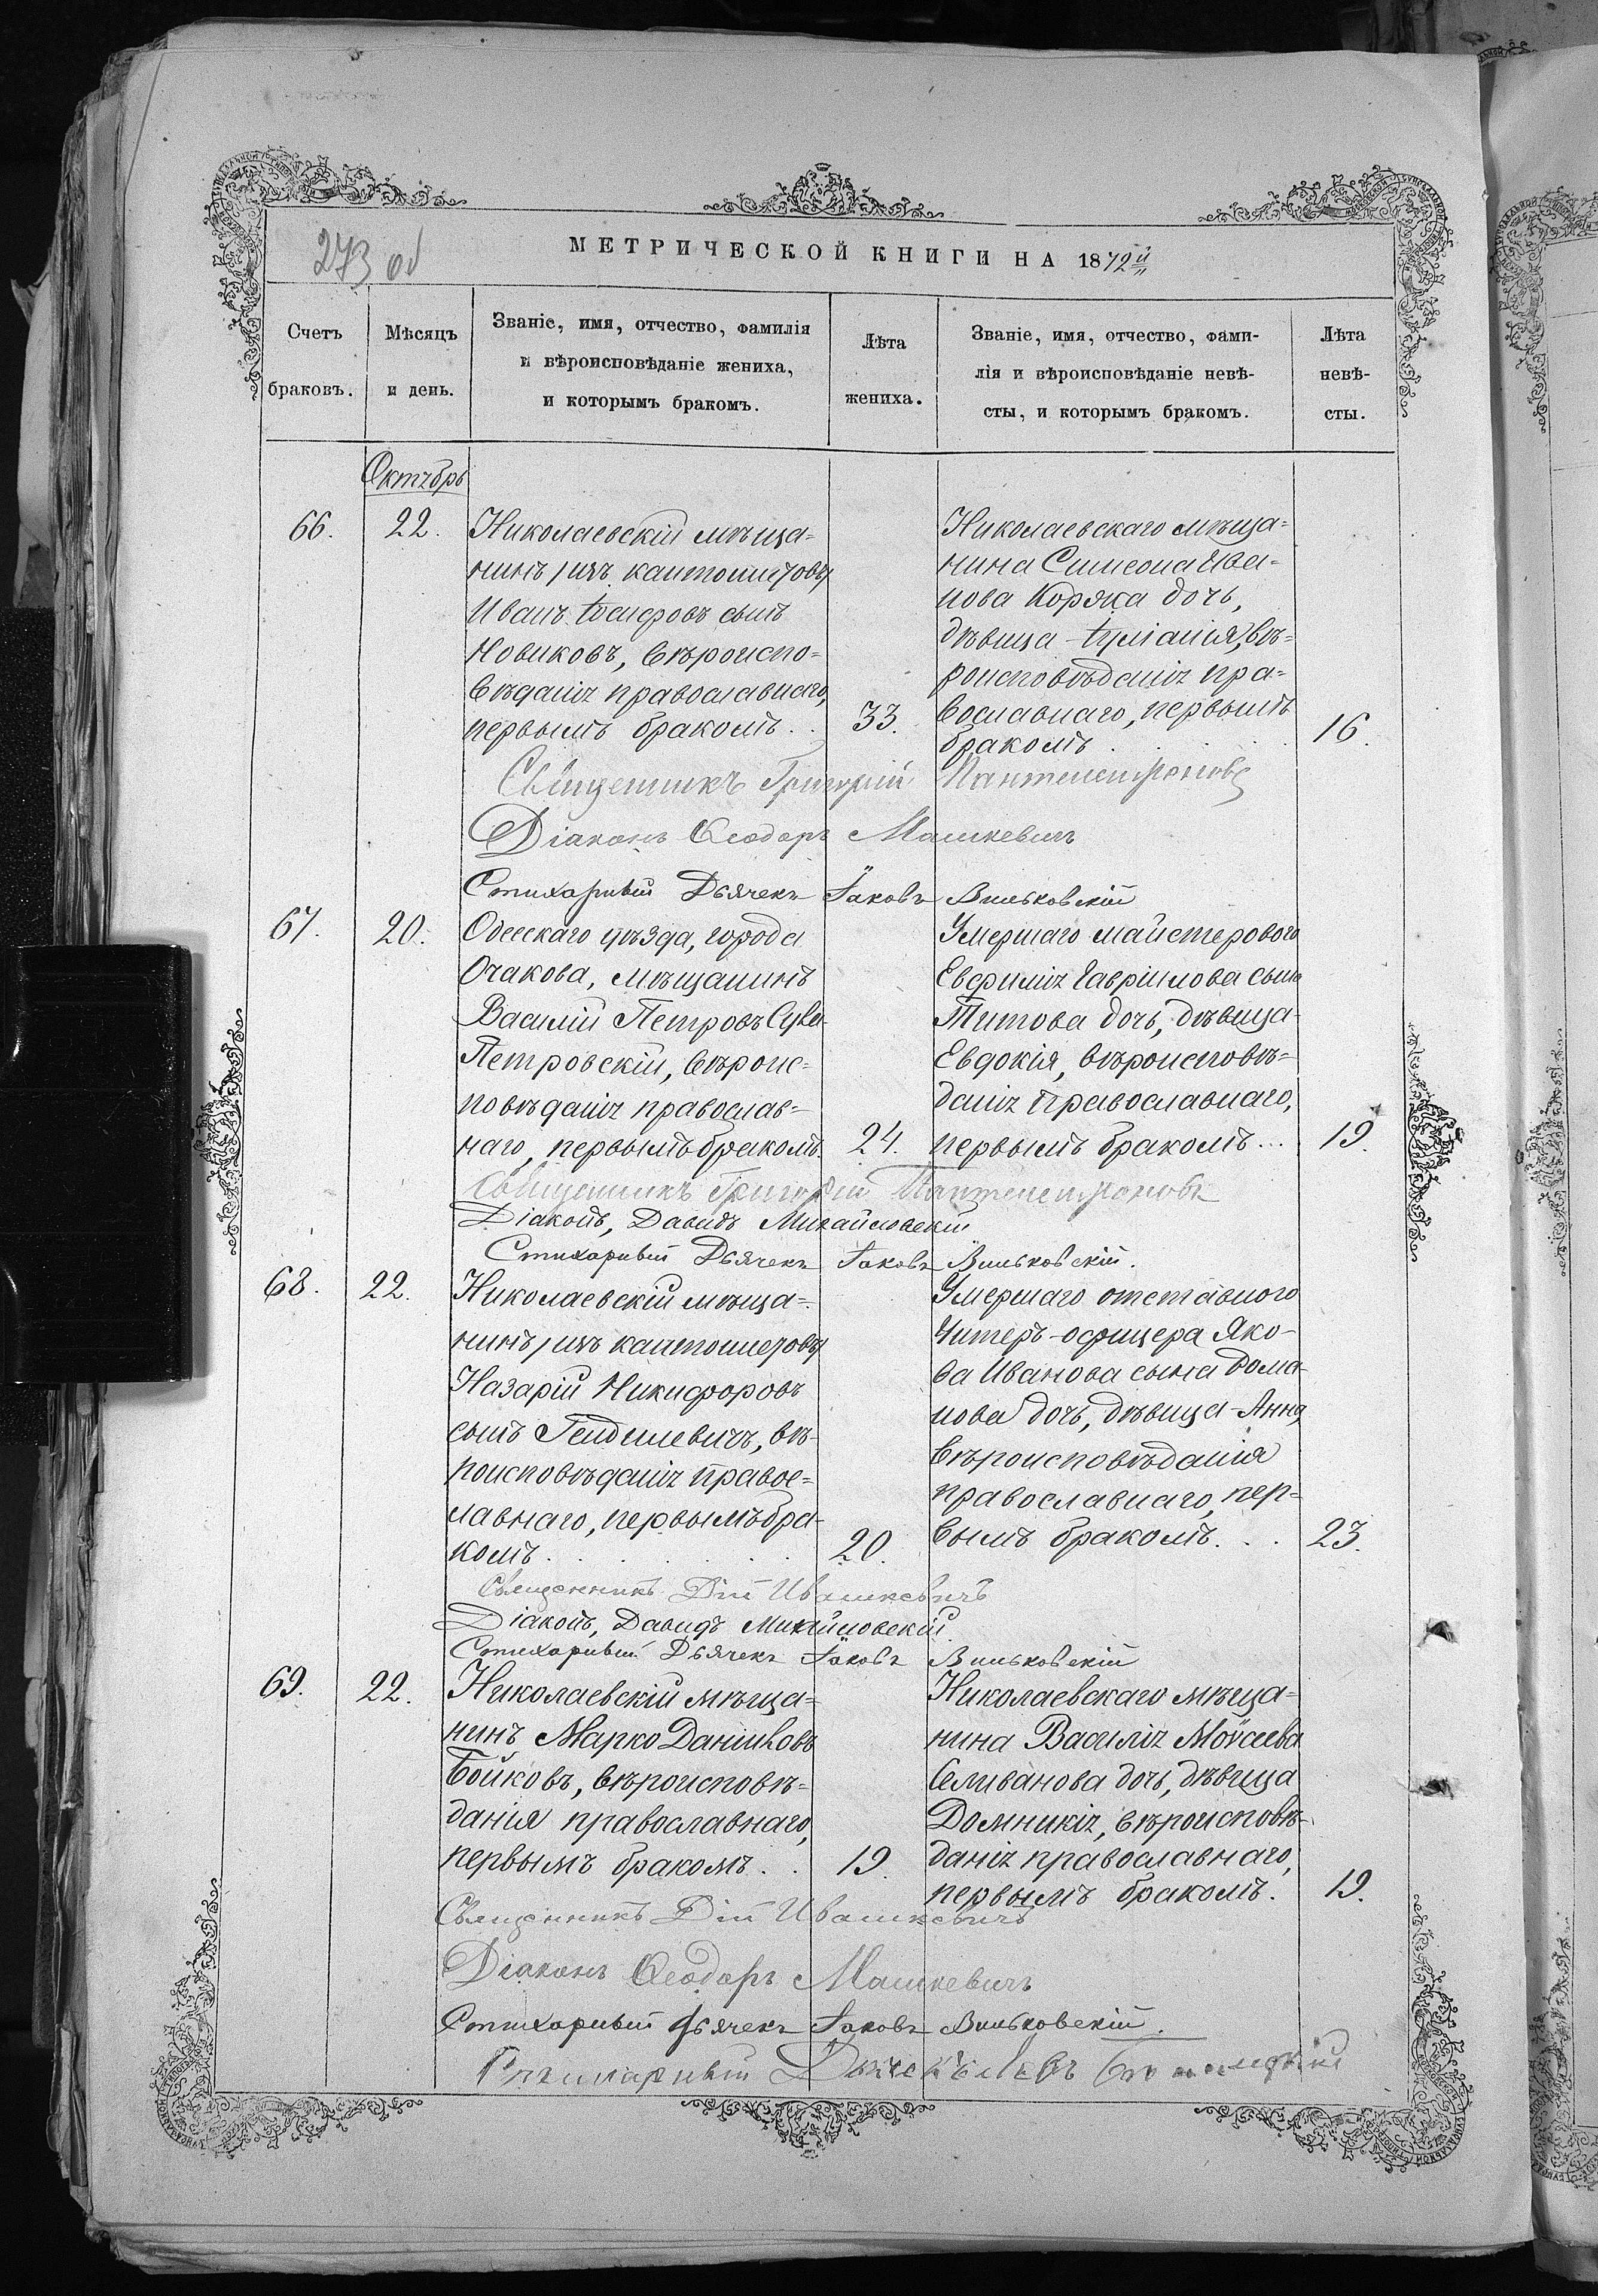 273 об
МЕТРИЧЕСКОЙ КНИГИ НА 1872й
Счетъ браковъ.
Мѣсяцъ и день.
Званіе, имя, отчество, фамилія
и вѣроисповѣданіе жениха,
и которымъ бракомъ.
Лѣта жениха.
Званіе, имя, отчество, фами-
лія и вѣроисповѣданіе невѣ-
сты, и которымъ бракомъ.
Лѣта невѣ-
сты.
Октябрь
66.
22.
Николаевскій мѣща=
нинъ /изъ кантонистовъ/
Иванъ Іосифовъ сынъ
Новиковъ, вѣроиспо=
вѣданія православнаго,
первымъ бракомъ . .
33.
Николаевскаго мѣща=
нина Симеона Ива-
нова Коряка дочь,
дѣвица - Іуліанія, вѣ=
роисповѣданія пра=
вославнаго, первымъ
бракомъ . . . . .
16.
Священникъ Григорій Пантелеимоновъ
Діаконъ Ѳеодоръ Машкевичъ
Стихарный Дьячекъ Іаковъ Вильковскій
67.
20.
Одесскаго уѣзда, города
Очакова, мѣщанинъ
Василій Петровъ
Петровскій, вѣроис=
повѣданія православ=
наго, первымъ бракомъ.
24.
Умершаго майстероваго
Евфимія Гавріилова сына
Титова дочь, дѣвица-
Евдокія, вѣроисповѣ=
данія православнаго,
первымъ бракомъ . . .
19.
Священникъ Григорій Пантелеимоновъ
Діаконъ, Давидъ Михайловскій
Стихарный Дьячекъ Іаковъ Вильковскій.
68.
22.
Николаевскій мѣща=
нинъ /изъ кантонистовъ/
Назарій Никифоровъ
сынъ вѣ-
роисповѣданія правос=
лавнаго, первымъ бра-
комъ . . . . . .
20.
Умершаго отставного
Унтеръ-офицера Яко-
ва Иванова сына Дома-
нова дочь, дѣвица - Анна,
вѣроисповѣданія
православнаго, пер=
вымъ бракомъ . . .
23.
Священникъ Дій Ивашкевичъ
Діаконъ, Давидъ Михайловскій
Стихарный Дьячекъ Іаковъ Вильковскій
69.
22.
Николаевскій мѣща=
нинъ Марко Даниловъ
Бойковъ, вѣроисповѣ=
данія православнаго,
первымъ бракомъ . .
19.
Николаевскаго мѣща=
нина Василія Моѵсеева
Селиванова дочь, дѣвица
Домникія, вѣроисповѣ-
данія православнаго,
первымъ бракомъ.
19.
Священникъ Дій Ивашкевичъ
Діаконъ Ѳеодоръ Машкевичъ
Стихарный Дьячекъ Іаковъ Вильковскій.
Стихарный Дьячекъ Левъ